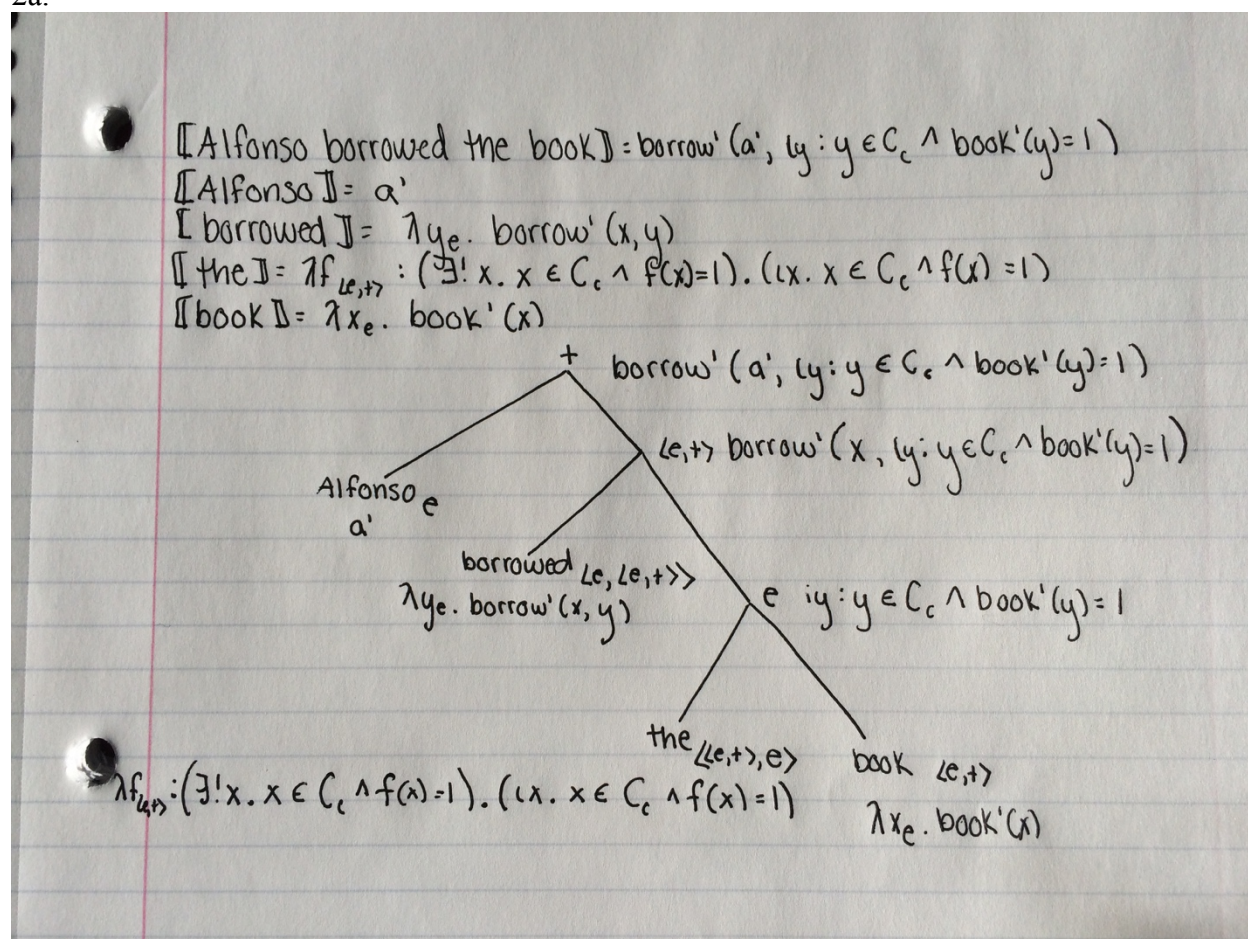 2a.
⟦Alfonso borrowed the book⟧ = borrow'(a', ιy : y ∈ C_c ∧ book'(y)=1)
⟦Alfonso⟧ = a'
⟦borrowed⟧ = λy_e. borrow'(x,y)
⟦the⟧ = λf_<e,t> : (∃!x. x ∈ C_c ∧ f(x)=1). (ιx. x ∈ C_c ∧ f(x) =1)
⟦book⟧ = λx_e. book'(x)
t borrow'(a', ιy: y ∈ C_c ∧ book'(y)=1)
<e,t> borrow'(x, ιy: y ∈ C_c ∧ book'(y)=1)
Alfonso e
a'
borrowed <e,<e,t>>
λy_e. borrow'(x,y)
e iy: y ∈ C_c ∧ book'(y) = 1
the <<e,t>,e>
book <e,t>
λf_<e,t> : (∃!x. x ∈ C_c ∧ f(x)=1). (ιx. x ∈ C_c ∧ f(x)=1)
λx_e. book'(x)